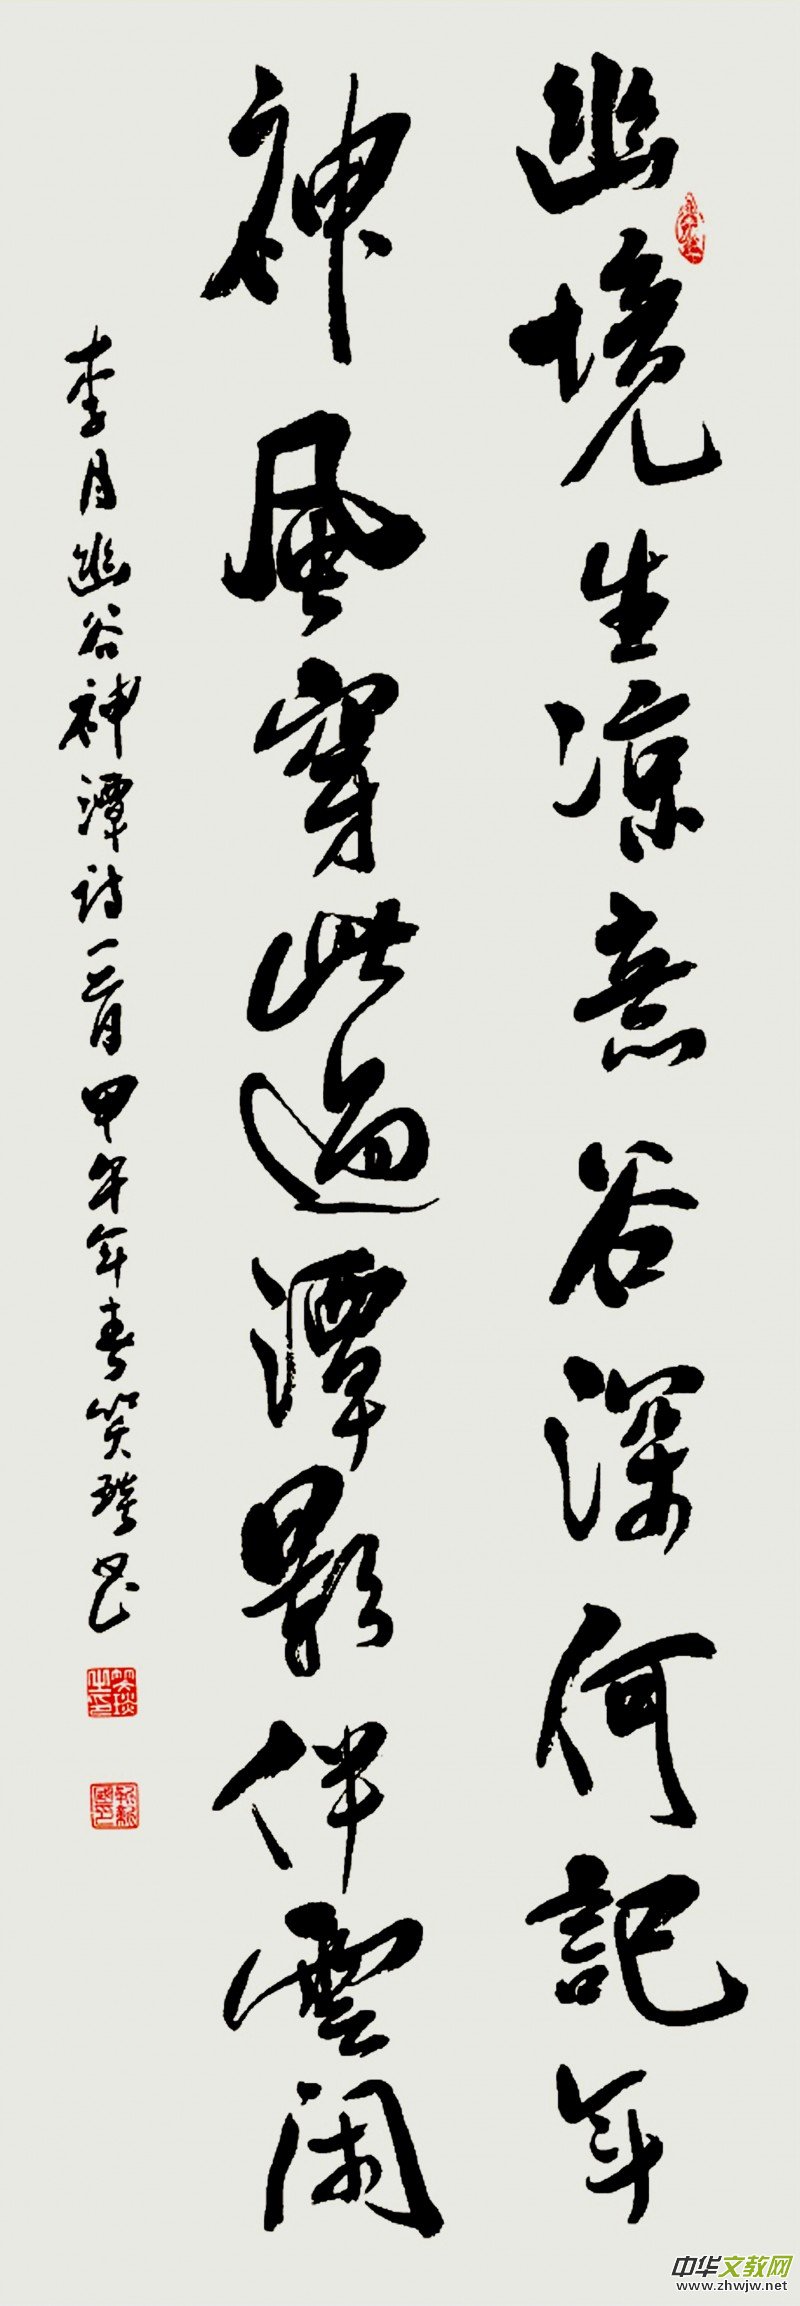 幽境生凉意谷深何記年
神風穿此過潭影伴雲閑
李月幽谷神潭诗一首甲午年春笑琰书
中华文教网
www.zhwjw.net